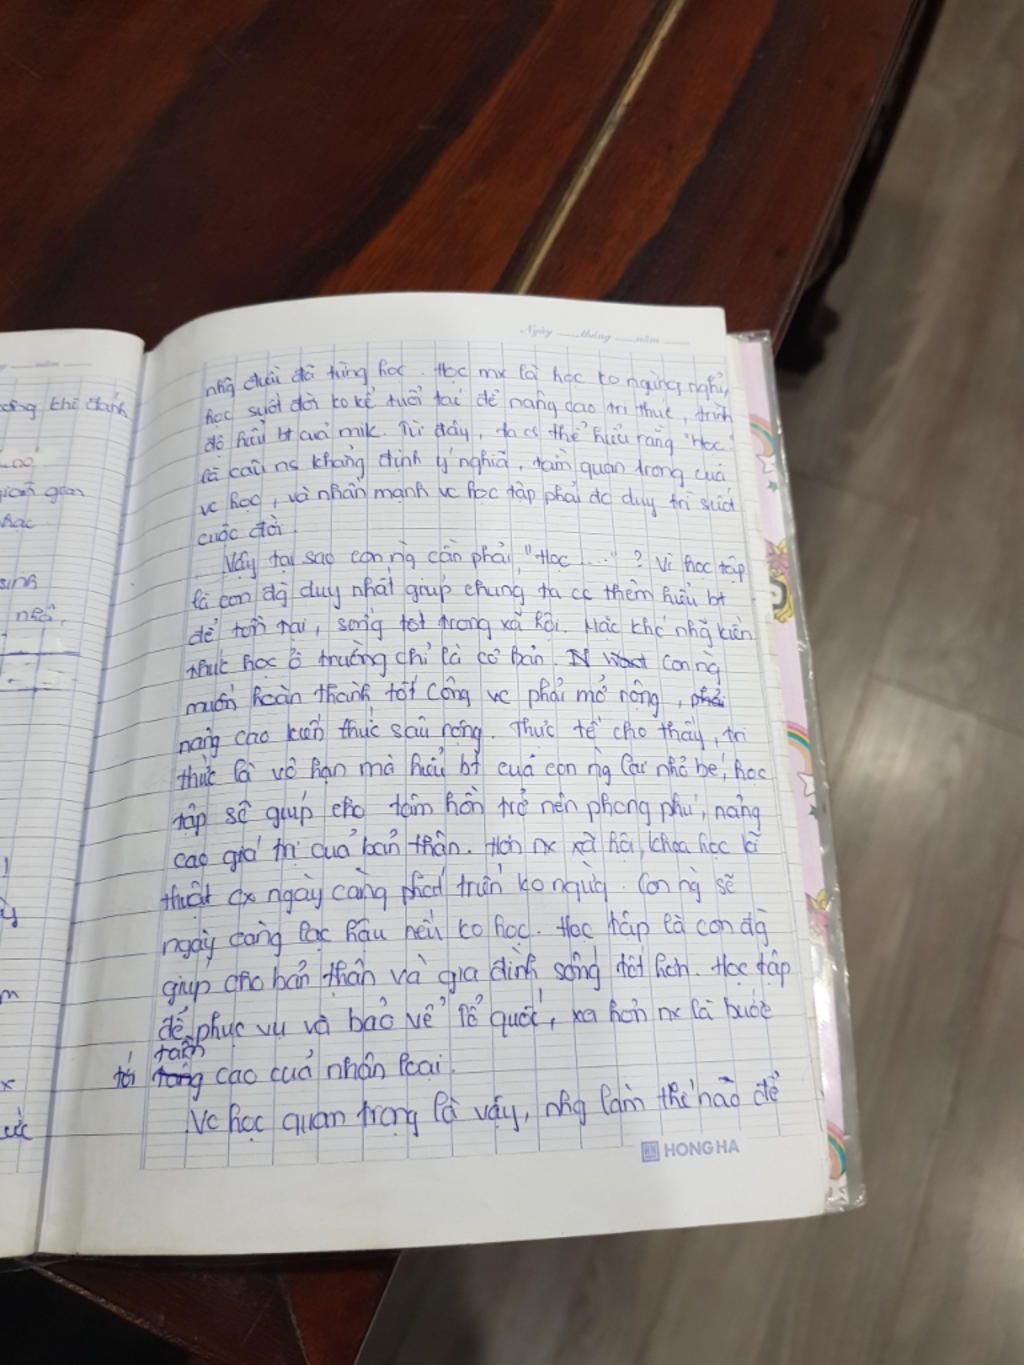 Ngày tháng năm
nhg đuổi đã từng học. Học mx là học ko ngừng nghỉ,
học suốt đời ko kể tuổi tác để nâng cao tri thức, trình
độ hiểu bt cuả mik. Từ đây, ta cs thể hiểu rằng "Học"
là câu ns khẳng định ý nghĩa, tầm quan trọng cuả
vc học, và nhấn mạnh vc học tập phải đc duy trì suốt
cuộc đời.
Vậy tại sao con ng cần phải "Học ....." ? Vì học tập
là con đg duy nhất giúp chúng ta cs thêm hiểu bt
để tồn tại, sống tốt trong xã hội. Mặc khác nhg kiến
thức học ở trường chỉ là cơ bản. con ng
muốn hoàn thành tốt công vc phải mở rộng,
nâng cao kiến thức sâu rộng. Thực tế cho thấy, tri
thức là vô hạn mà hiểu bt cuả con ng lại nhỏ bé, học
tập sẽ giúp cho tâm hồn trở nên phong phú, nâng
cao giá trị cuả bản thân. Hơn nx xã hội, khoa học kĩ
thuật cx ngày càng phát triển ko ngừng. Con ng sẽ
ngày càng lạc hậu nếu ko học. Học tập là con đg
giúp cho bản thân và gia đình sống tốt hơn. Học tập
để phục vụ và bảo vệ Tổ quốc, xa hơn nx là bước
tới tầm cao cuả nhân loại.
Vc học quan trọng là vậy, nhg làm thế nào để
HONG HA
ông khi đánh
gian
học
sinh
nhỏ,